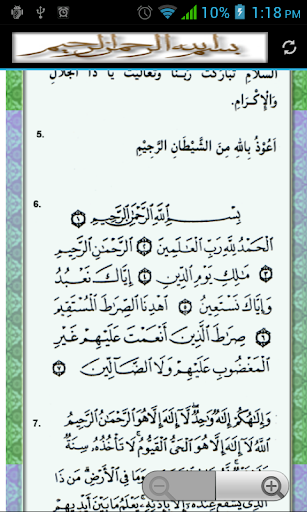 10% 1:18 PM
بسم الله الرحمن الرحيم
السلام تباركت ربنا وتعاليت يا ذا الجلال
وَالْإِكْرَامِ.
5.
اَعُوْذُ بِاللهِ مِنَ الشَّيْطَانِ الرَّجِيْمِ
6.
بِسْمِ اللَّهِ الرَّحْمَٰنِ الرَّحِيمِ ١
الْحَمْدُ لِلَّهِ رَبِّ الْعَالَمِينَ ٢ الرَّحْمَٰنِ الرَّحِيمِ
٣ مَالِكِ يَوْمِ الدِّينِ ٤ إِيَّاكَ نَعْبُدُ
وَإِيَّاكَ نَسْتَعِينُ ٥ اهْدِنَا الصِّرَاطَ الْمُسْتَقِيمَ
٦ صِرَاطَ الَّذِينَ أَنْعَمْتَ عَلَيْهِمْ غَيْرِ
الْمَغْضُوبِ عَلَيْهِمْ وَلَا الضَّالِّينَ ٧
7.
وَإِلَٰهُكُمْ إِلَٰهٌ وَاحِدٌ لَا إِلَٰهَ إِلَّا هُوَ الرَّحْمَٰنُ الرَّحِيمُ
اللَّهُ لَا إِلَٰهَ إِلَّا هُوَ الْحَيُّ الْقَيُّومُ لَا تَأْخُذُهُ سِنَةٌ
وَمَا فِي الْأَرْضِ مَنْ ذَا
الَّذِي يَشْفَعُ عِنْدَهُ إِلَّا بِإِذْنِهِ يَعْلَمُ مَا بَيْنَ أَيْدِيهِمْ